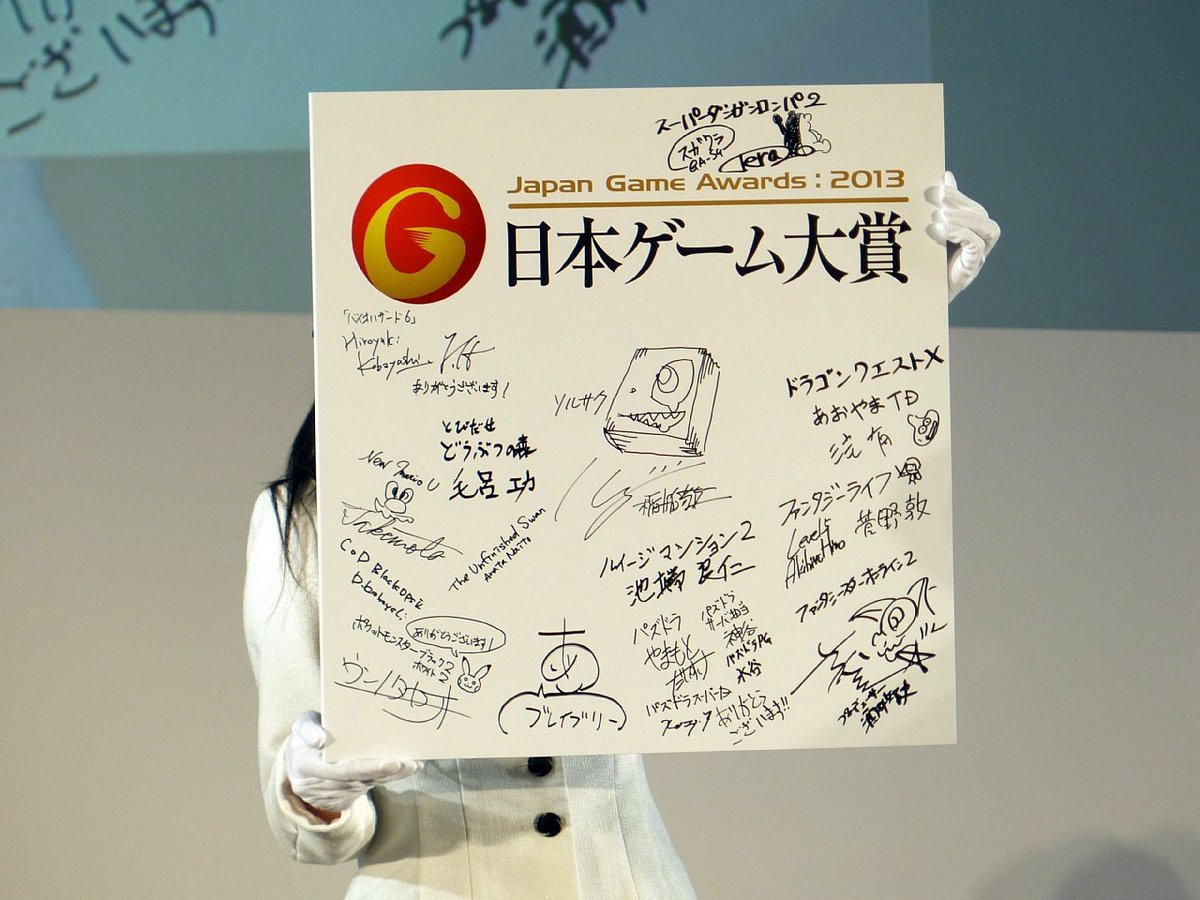 ございます
スーパーダンガンロンパ2
スガワラ
tera
Japan Game Awards : 2013
日本ゲーム大賞
「バイオハザード6」
Hiroyuki
Kobayashi
ありがとうございます!
とびだせ
どうぶつの森
毛呂 功
New Mario U
Takemoto
The Unfinished Swan
CoD BlackOps II
ポケットモンスターブラック2
ホワイト2
ありがとうございます!
ソルサク
ルイージマンション2
池端 良仁
パズドラ
やまもと
パズドラ
サーバ担当
神谷
パズドラPG
水谷
パズドラスーパーム
ありがとう
ございます!!
ブレイブリー
ドラゴンクエストX
あおやまTD
ファンタジーライフ
Level5
Akihiro Hino
菅野 敦
ファンタシースターオンライン2
プロデューサー